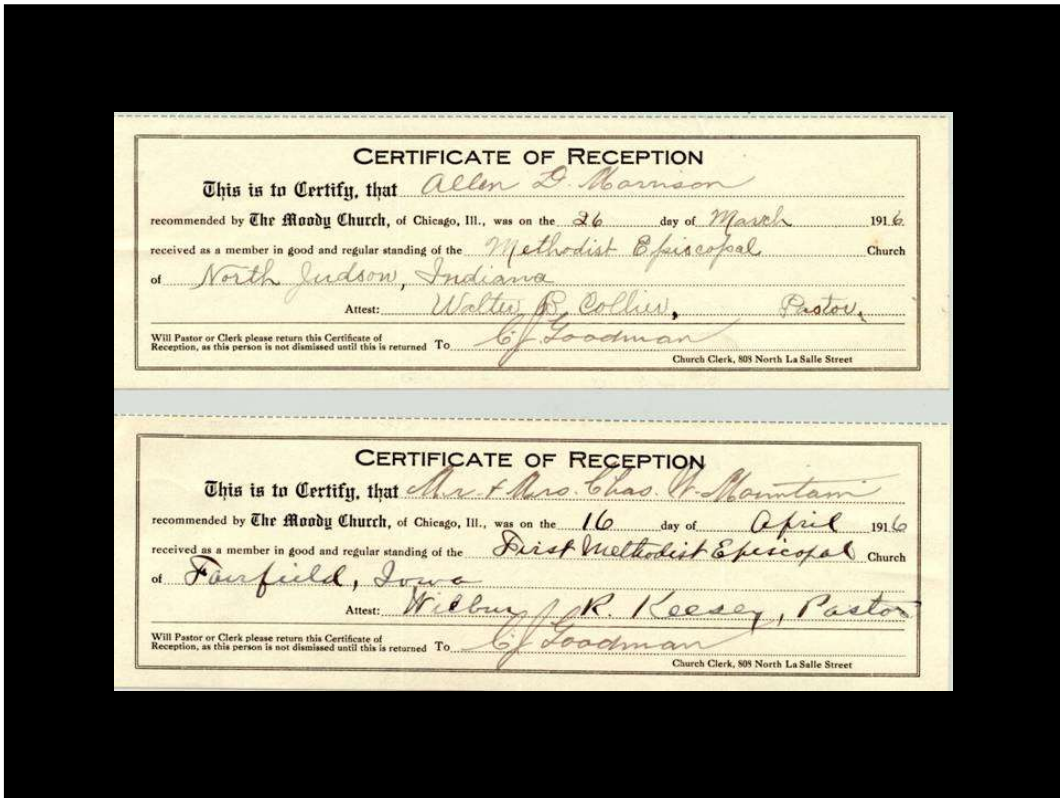 CERTIFICATE OF RECEPTION
This is to Certify, that Allen D. Morrison
recommended by The Moody Church, of Chicago, Ill., was on the 26 day of March 1916
received as a member in good and regular standing of the Methodist Episcopal Church
of North Judson, Indiana
Attest: Walter B. Collier, Pastor.
Will Pastor or Clerk please return this Certificate of
Reception, as this person is not dismissed until this is returned To C J Goodman
Church Clerk, 808 North La Salle Street
CERTIFICATE OF RECEPTION
This is to Certify, that Mr. + Mrs. Chas. W. Mountain
recommended by The Moody Church, of Chicago, Ill., was on the 16 day of April 1916
received as a member in good and regular standing of the First Methodist Episcopal Church
of Fairfield, Iowa
Attest: Wilbur R. Keesey, Pastor
Will Pastor or Clerk please return this Certificate of
Reception, as this person is not dismissed until this is returned To C J Goodman
Church Clerk, 808 North La Salle Street